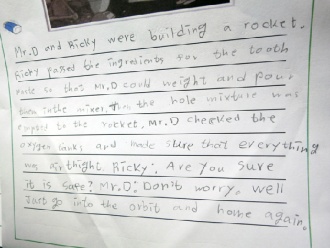 Mr.D and Ricky were building a rocket.
Ricky passed the ingredients for the tooth
paste so that Mr.D could weight and pour
them into the mixer. Then the hole mixture was
to the rocket, Mr.D checked the
oxygen tanks and made sure that everything
was airthight. Ricky: Are you sure
it is safe? Mr.D: Don't worry, well
Just go into the orbit and home again.